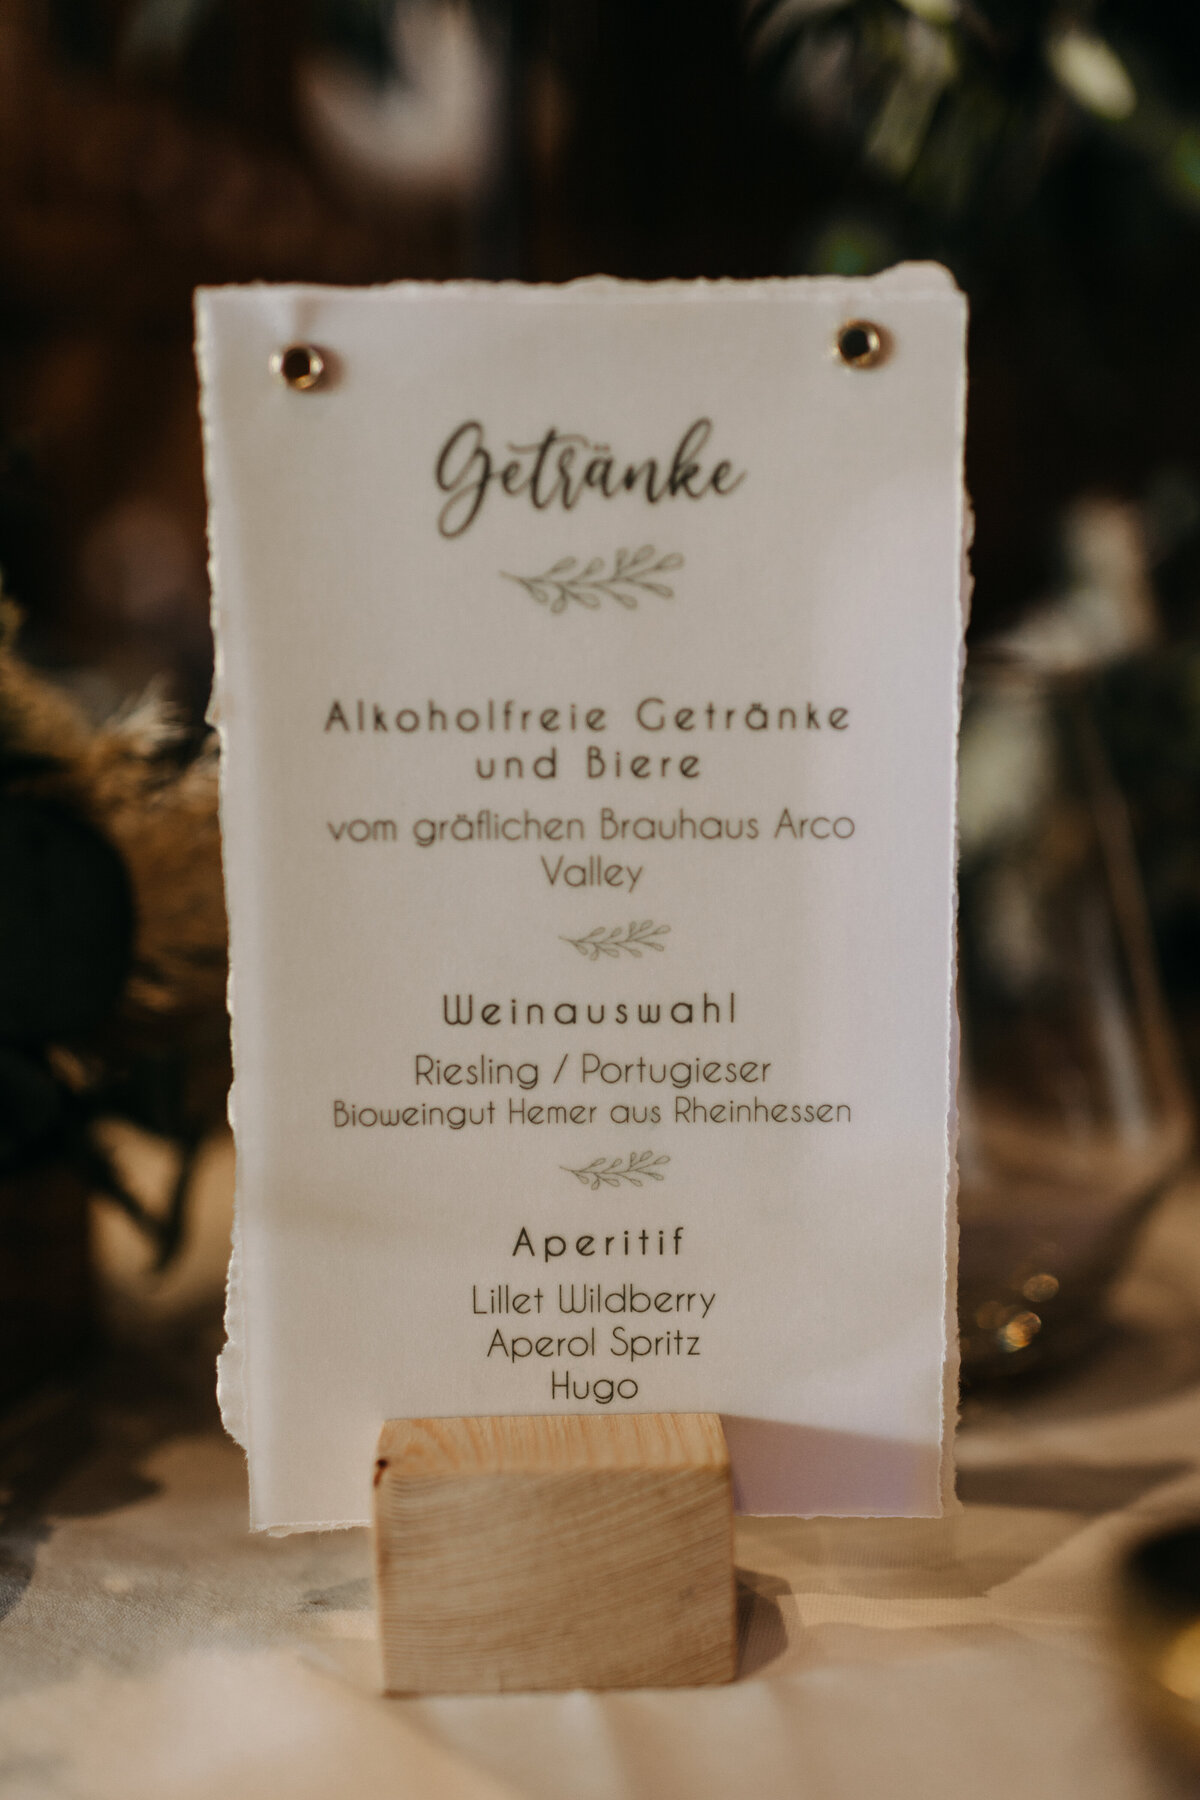 Getränke
Alkoholfreie Getränke
und Biere
vom gräflichen Brauhaus Arco
Valley
Weinauswahl
Riesling / Portugieser
Bioweingut Hemer aus Rheinhessen
Aperitif
Lillet Wildberry
Aperol Spritz
Hugo